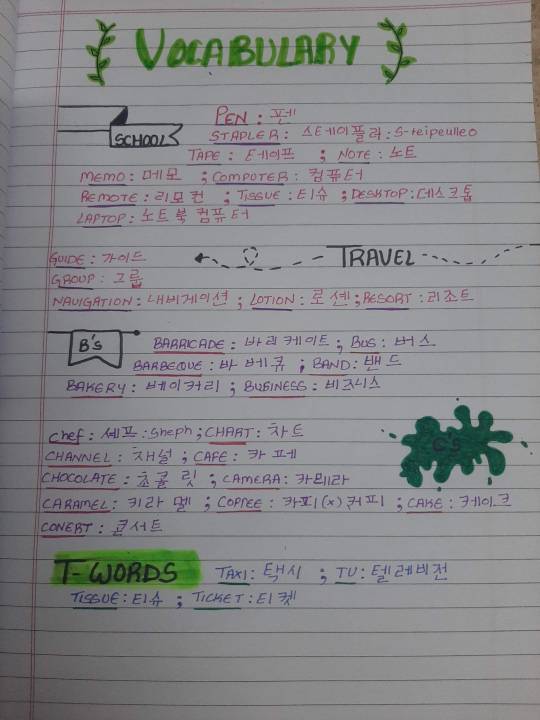 VOCABULARY
SCHOOL
PEN: 펜
STAPLER: 스테이플라: S-teipeulleo
TAPE: 테이프 ; NOTE: 노트
MEMO: 메모 ; COMPUTER: 컴퓨터
REMOTE: 리모컨 ; TISSUE: 티슈 ; DESKTOP: 데스크톱
LAPTOP: 노트북 컴퓨터
TRAVEL
GUIDE: 가이드
GROUP: 그룹
NAVIGATION: 내비게이션 ; LOTION: 로션 ; RESORT: 리조트
B's
BARRICADE: 바리케이트 ; BUS: 버스
BARBEQUE: 바베큐 ; BAND: 밴드
BAKERY: 베이커리 ; BUSINESS: 비즈니스
C's
Chef: 셰프: Sheph ; CHART: 차트
CHANNEL: 채널 ; CAFE: 카페
CHOCOLATE: 초콜릿 ; CAMERA: 카메라
CARAMEL: 키라멜 ; COFFEE: 카피(x) 커피 ; CAKE: 케이크
CONERT: 콘서트
T-WORDS
TAXI: 택시 ; TV: 텔레비전
TISSUE: 티슈 ; TICKET: 티켓